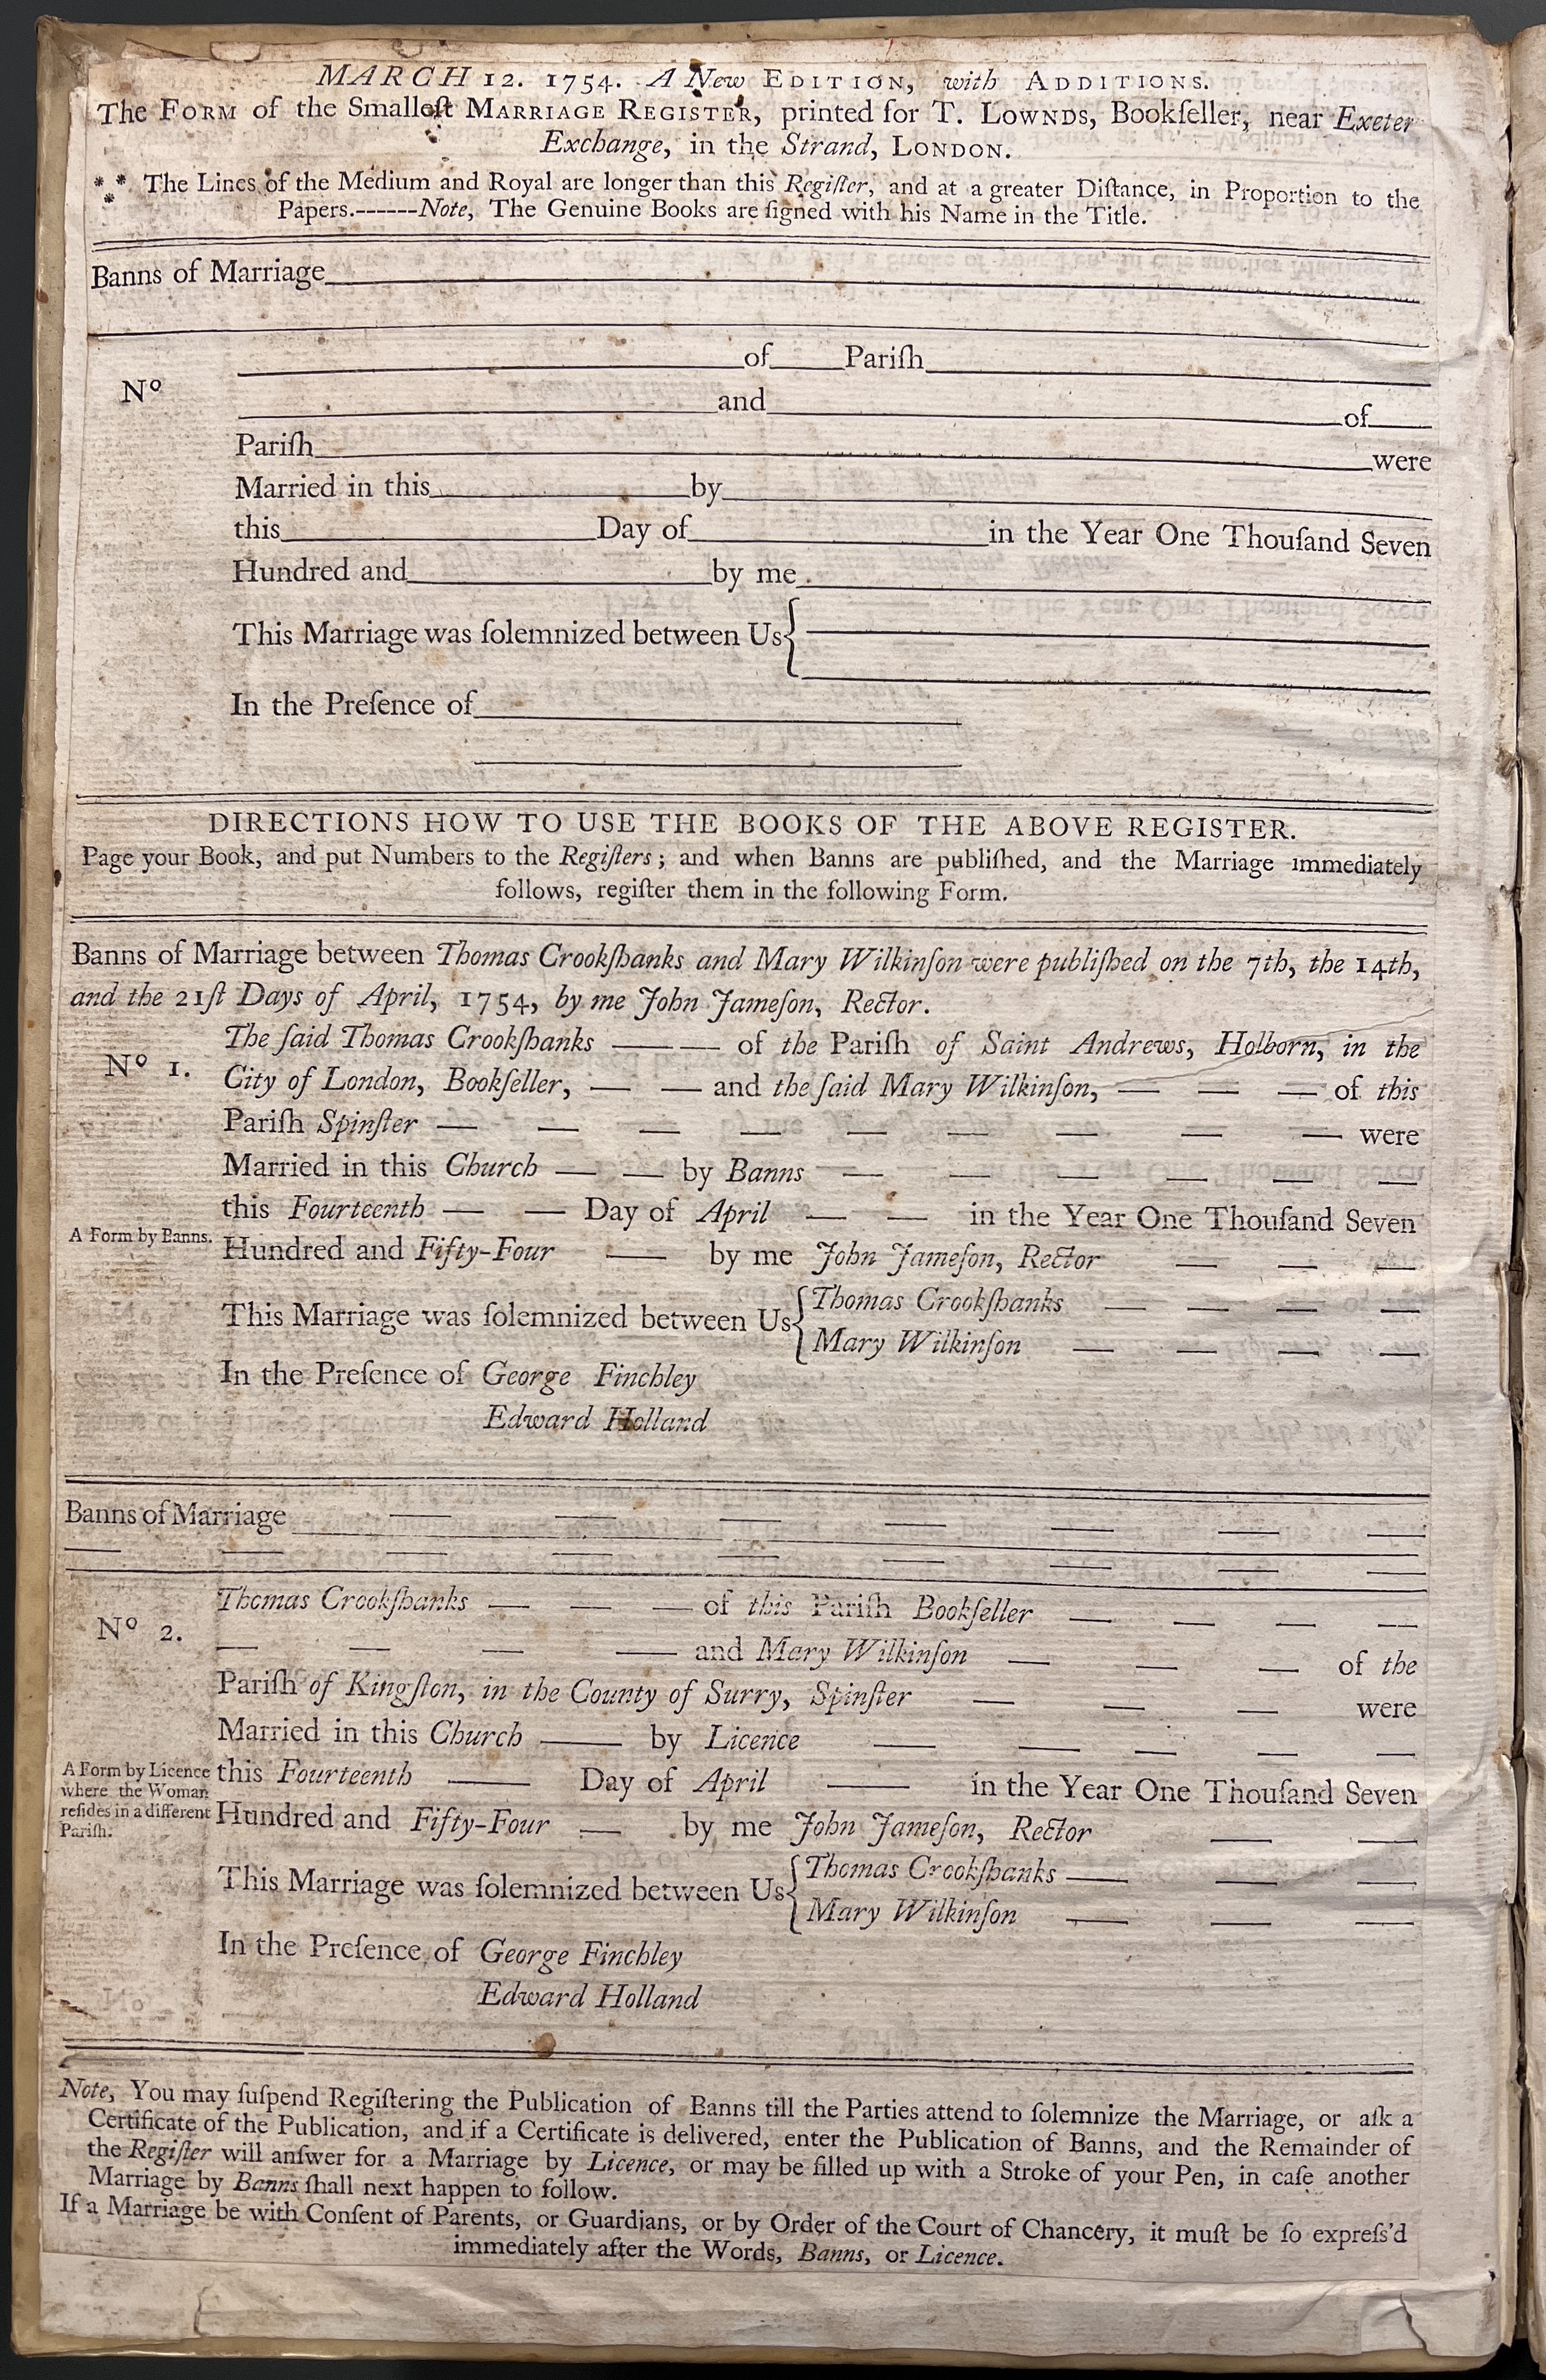 MARCH 12. 1754. A New EDITION, with ADDITIONS.
The FORM of the Smalleſt MARRIAGE REGISTER, printed for T. LOWNDS, Bookſeller, near Exeter
Exchange, in the Strand, LONDON.
*** The Lines of the Medium and Royal are longer than this Regiſter, and at a greater Diſtance, in Proportion to the
Papers.------Note, The Genuine Books are ſigned with his Name in the Title.
Banns of Marriage
of Pariſh
Nº
and of
Pariſh were
Married in this by
this Day of in the Year One Thouſand Seven
Hundred and by me
This Marriage was ſolemnized between Us
In the Preſence of
DIRECTIONS HOW TO USE THE BOOKS OF THE ABOVE REGISTER.
Page your Book, and put Numbers to the Regiſters; and when Banns are publiſhed, and the Marriage immediately
follows, regiſter them in the following Form.
Banns of Marriage between Thomas Crookſhanks and Mary Wilkinſon were publiſhed on the 7th, the 14th,
and the 21ſt Days of April, 1754, by me John Jameſon, Rector.
The ſaid Thomas Crookſhanks — — of the Pariſh of Saint Andrews, Holborn, in the
Nº 1.
City of London, Bookſeller, — — and the ſaid Mary Wilkinſon, — — — of this
Pariſh Spinſter — — — — — — — — — were
Married in this Church — — by Banns — — — — — —
this Fourteenth — — Day of April — — in the Year One Thouſand Seven
A Form by Banns.
Hundred and Fifty-Four — by me John Jameſon, Rector — — —
This Marriage was ſolemnized between Us { Thomas Crookſhanks — — — —
Mary Wilkinſon — — — —
In the Preſence of George Finchley
Edward Holland
Banns of Marriage — — — — — — —
— — — — — — — — —
Thomas Crookſhanks — — — of this Pariſh Bookſeller — — — —
Nº 2.
— — — — and Mary Wilkinſon — — — of the
Pariſh of Kingſton, in the County of Surry, Spinſter — — — were
Married in this Church — by Licence — — — — —
A Form by Licence
where the Woman
reſides in a different
Pariſh.
this Fourteenth — Day of April — in the Year One Thouſand Seven
Hundred and Fifty-Four — by me John Jameſon, Rector — —
This Marriage was ſolemnized between Us { Thomas Crookſhanks — — —
Mary Wilkinſon — — —
In the Preſence of George Finchley
Edward Holland
Note, You may ſuſpend Regiſtering the Publication of Banns till the Parties attend to ſolemnize the Marriage, or aſk a
Certificate of the Publication, and if a Certificate is delivered, enter the Publication of Banns, and the Remainder of
the Regiſter will anſwer for a Marriage by Licence, or may be filled up with a Stroke of your Pen, in caſe another
Marriage by Banns ſhall next happen to follow.
If a Marriage be with Conſent of Parents, or Guardians, or by Order of the Court of Chancery, it muſt be ſo expreſs'd
immediately after the Words, Banns, or Licence.